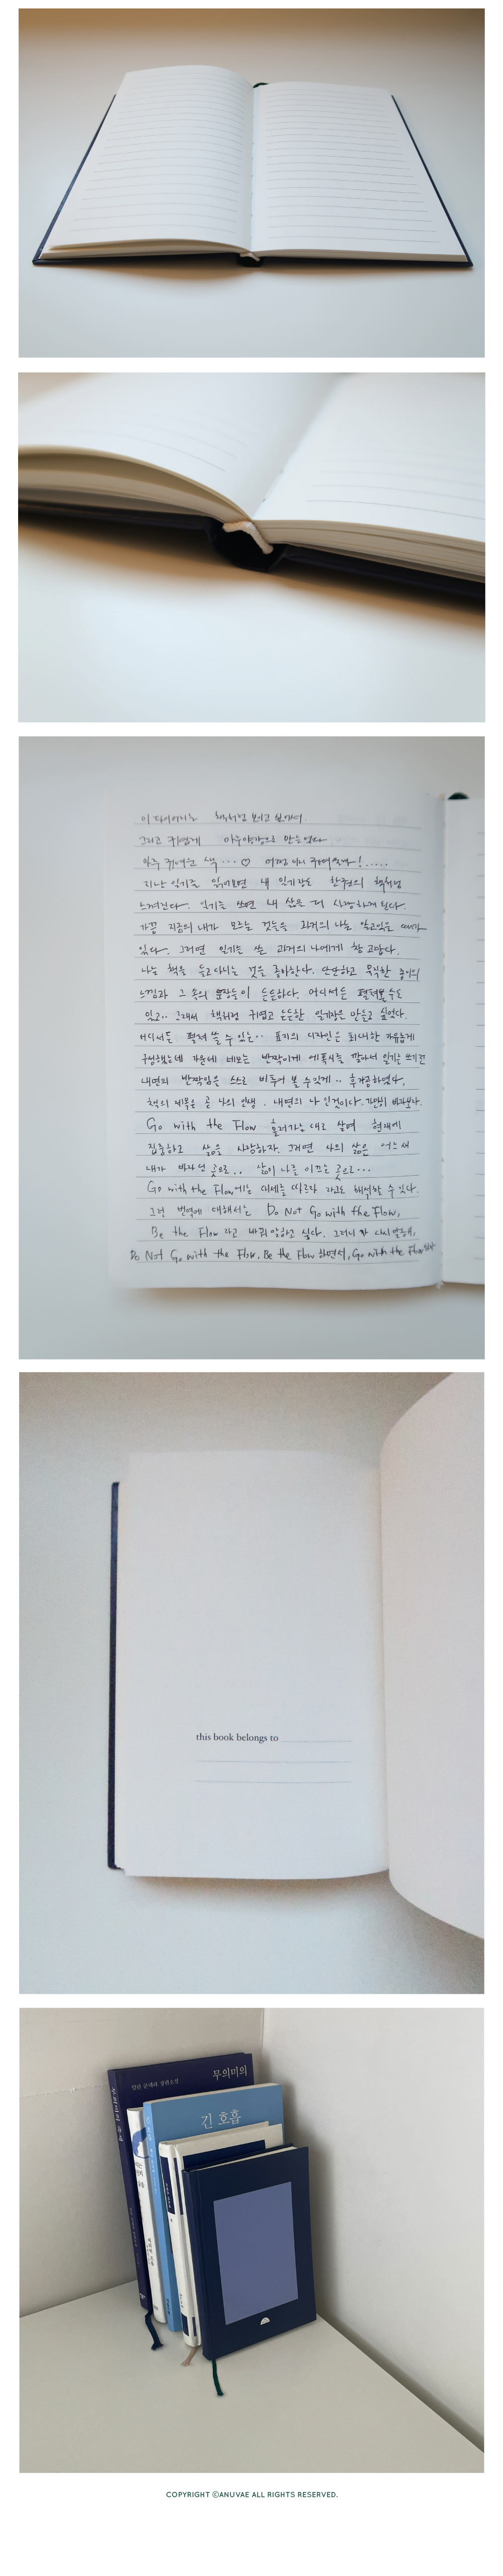 이 다이어리는 책처럼 보이고 싶어서
그리고 귀엽게 마음야광으로 만들었다
아주 귀여운 색 ... ♡ 어쩜 이리 귀여울까! .....
지난 일기를 읽어보면 내 일기장도 한권의 책처럼
느껴진다. 일기를 쓰면 내 삶을 더 사랑하게 된다.
가끔 지금의 내가 모르는 것들을 과거의 나는 알고있을 때가
있다. 그러면 일기를 쓴 과거의 나에게 참 고맙다.
나는 책을 들고다니는 것을 좋아한다. 단단하고 묵직한 종이의
느낌과 그 속의 문장들이 든든하다. 어디서든 펼쳐볼수도
있고.. 그래서 책처럼 귀엽고 든든한 일기장을 만들고 싶었다.
어디서든 펼쳐 쓸 수 있는.. 표지의 디자인은 최대한 자유롭게
구성했는데 가운데 네모는 반짝이게 에폭시를 깔아서 일기를 쓰기전
내면의 반짝임을 스스로 비추어 볼 수 있게.. 후가공하였다.
책의 제목은 곧 나의 인생. 내면의 나 인것이다. 가만히 바라보자.
Go with the Flow 흘러가는 대로 살며 현재에
집중하고 삶을 사랑하자. 그러면 나의 삶은 어느새
내가 바라던 곳으로.. 삶이 나를 이끄는 곳으로...
Go with the Flow에는 대세를 따르라 라고도 해석할 수 있다.
그런 번역에 대해서는 Do Not Go with the Flow,
Be the Flow 라고 바꿔 말하고 싶다. 그러니 다시 말해,
Do Not Go with the Flow, Be the Flow 하면서, Go with the Flow
this book belongs to
무의미의
긴 호흡
COPYRIGHT ⓒANUVAE ALL RIGHTS RESERVED.